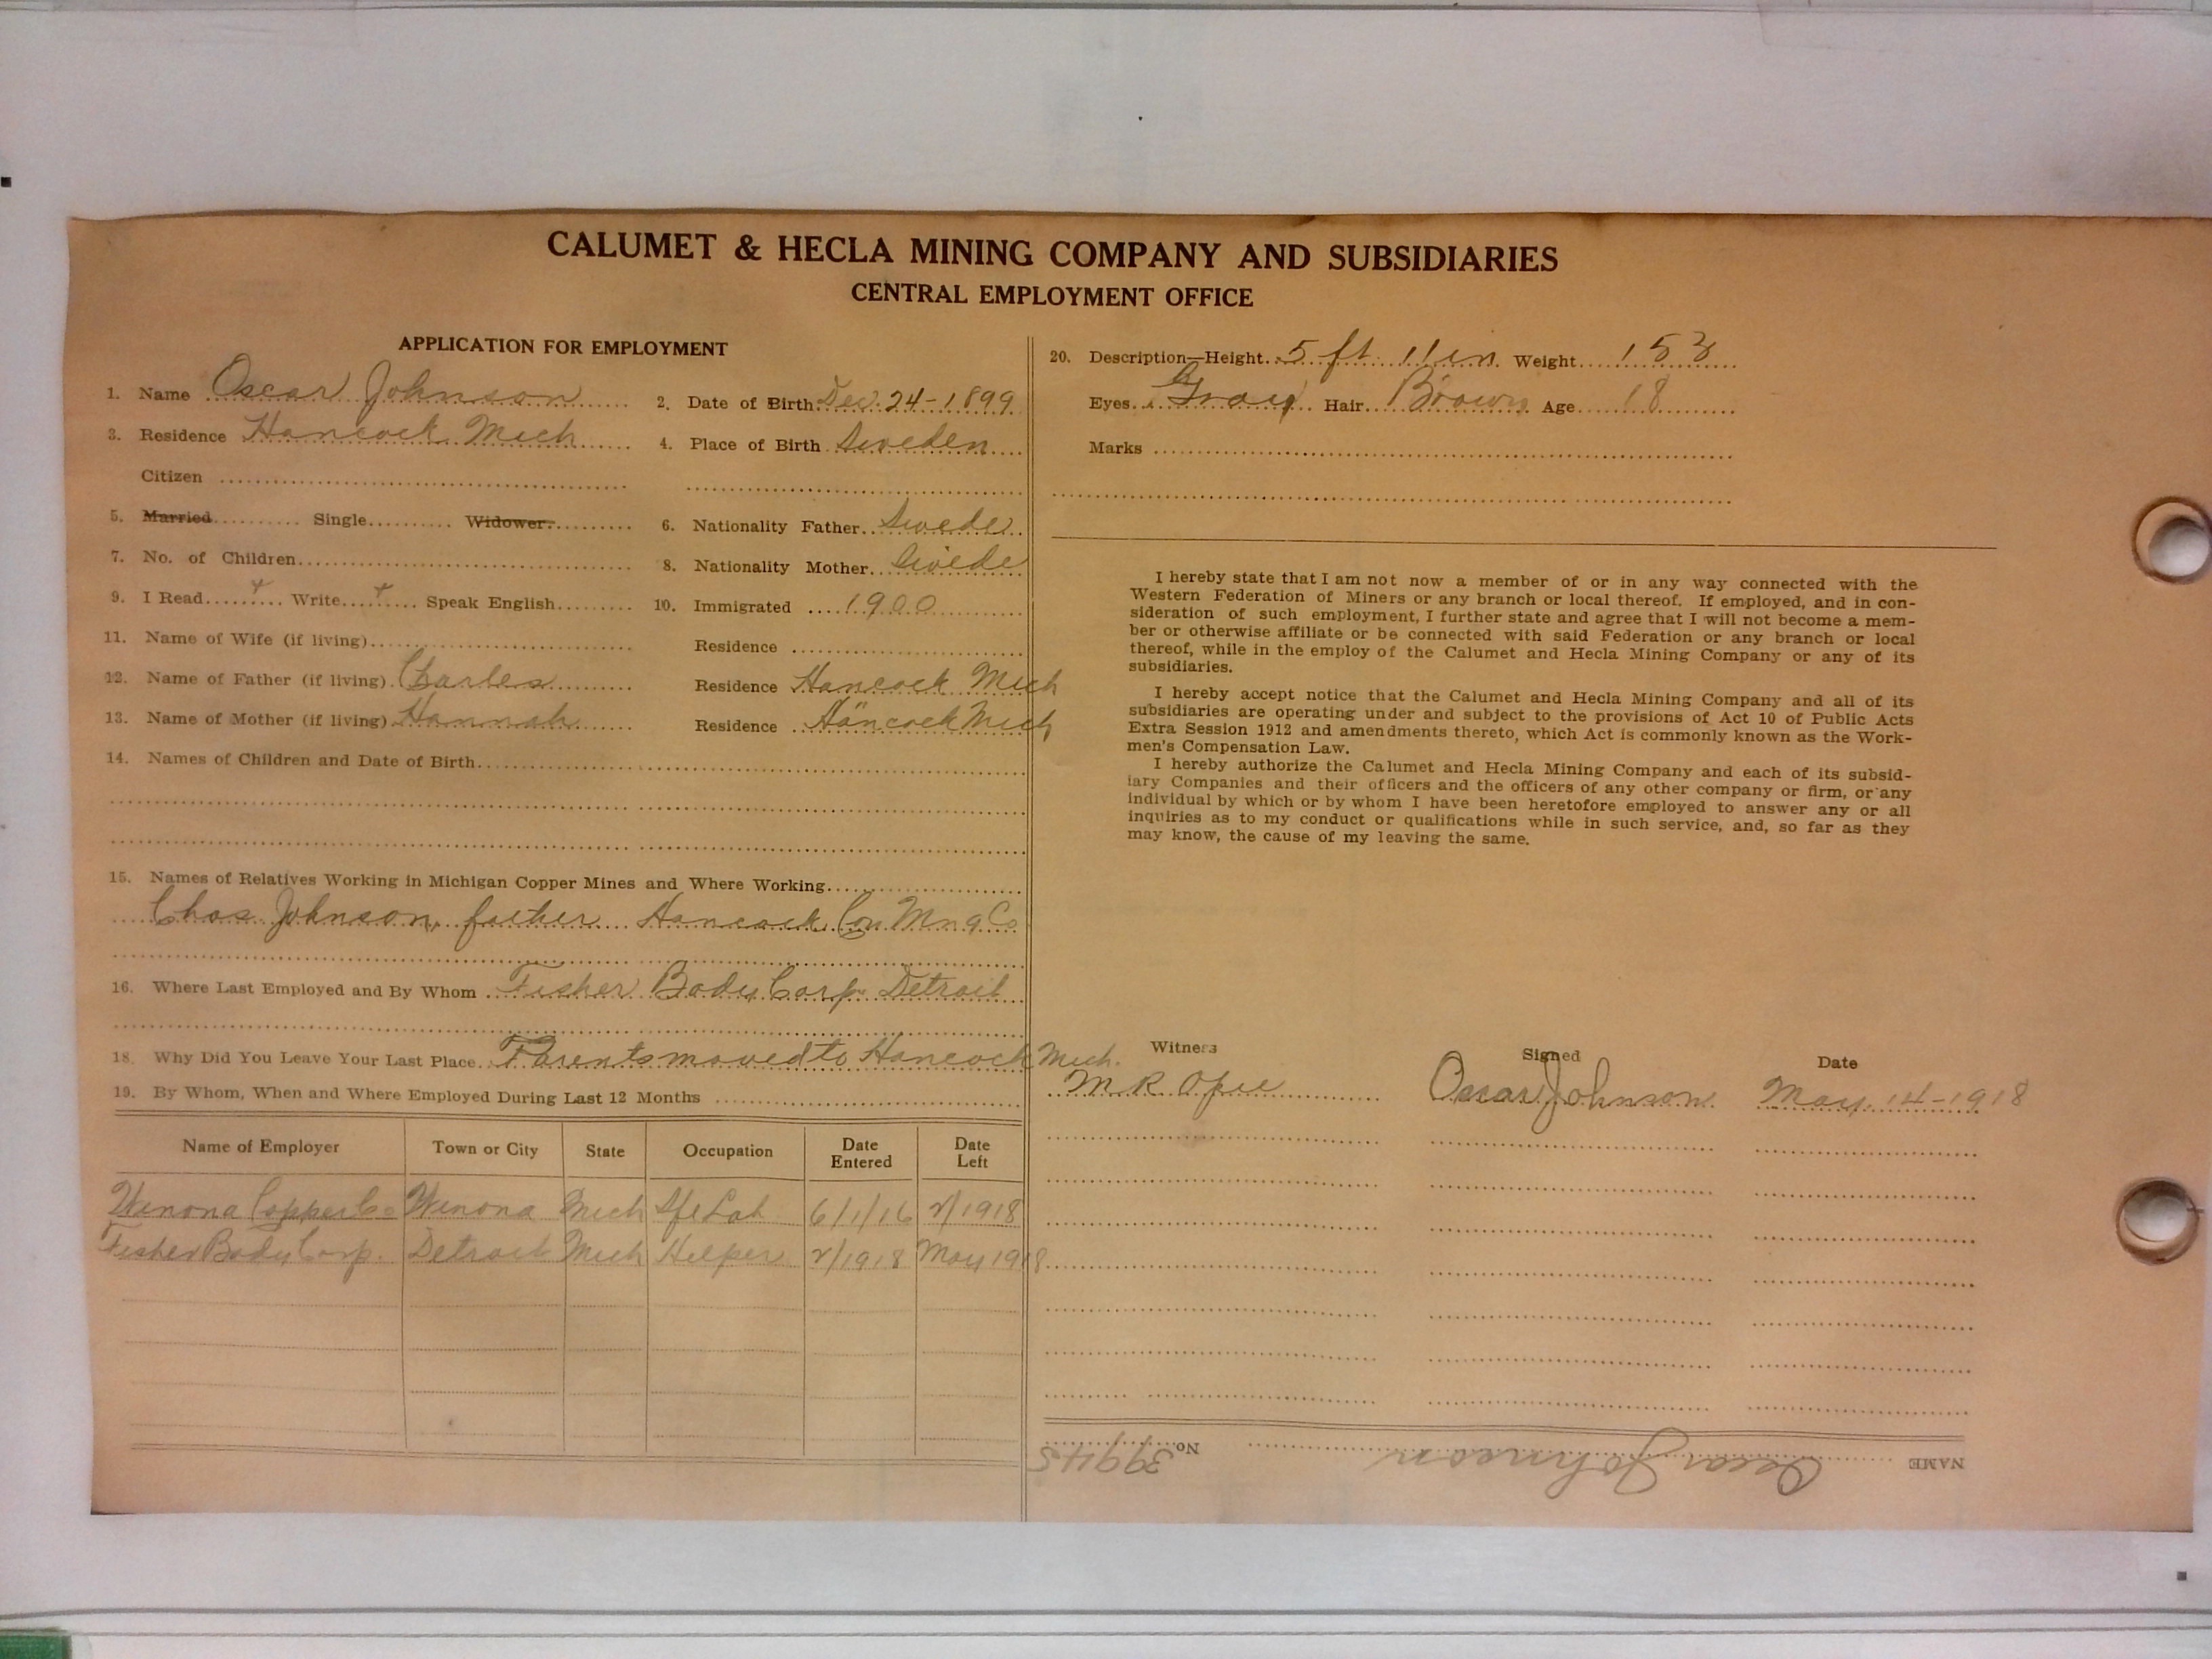 CALUMET & HECLA MINING COMPANY AND SUBSIDIARIES
CENTRAL EMPLOYMENT OFFICE
APPLICATION FOR EMPLOYMENT
1. Name Oscar Johnson
2. Date of Birth Dec. 24-1899
3. Residence Hancock Mich
4. Place of Birth Sweden
Citizen
5. Married Single Widower
6. Nationality Father Swede
7. No. of Children
8. Nationality Mother Swede
9. I Read x Write x Speak English
10. Immigrated 1900
11. Name of Wife (if living)
Residence
12. Name of Father (if living) Charles
Residence Hancock Mich
13. Name of Mother (if living) Hannah
Residence Hancock Mich
14. Names of Children and Date of Birth
15. Names of Relatives Working in Michigan Copper Mines and Where Working
Chas Johnson, father Hancock Con Mng Co
16. Where Last Employed and By Whom Fisher Body Corp Detroit
18. Why Did You Leave Your Last Place Parents moved to Hancock Mich.
19. By Whom, When and Where Employed During Last 12 Months
Name of Employer Town or City State Occupation Date Entered Date Left
Winona Copper Co Winona Mich Sfe Lab 6/1/16 2/1918
Fisher Body Corp. Detroit Mich Helper 2/1918 May 1918
20. Description—Height 5 ft 11 in Weight 153
Eyes Gray Hair Brown Age 18
Marks
I hereby state that I am not now a member of or in any way connected with the
Western Federation of Miners or any branch or local thereof. If employed, and in con-
sideration of such employment, I further state and agree that I will not become a mem-
ber or otherwise affiliate or be connected with said Federation or any branch or local
thereof, while in the employ of the Calumet and Hecla Mining Company or any of its
subsidiaries.
I hereby accept notice that the Calumet and Hecla Mining Company and all of its
subsidiaries are operating under and subject to the provisions of Act 10 of Public Acts
Extra Session 1912 and amendments thereto, which Act is commonly known as the Work-
men's Compensation Law.
I hereby authorize the Calumet and Hecla Mining Company and each of its subsid-
iary Companies and their officers and the officers of any other company or firm, or any
individual by which or by whom I have been heretofore employed to answer any or all
inquiries as to my conduct or qualifications while in such service, and, so far as they
may know, the cause of my leaving the same.
Witness Signed Date
M R Opie Oscar Johnson May 14-1918
NAME Oscar Johnson No. 39945